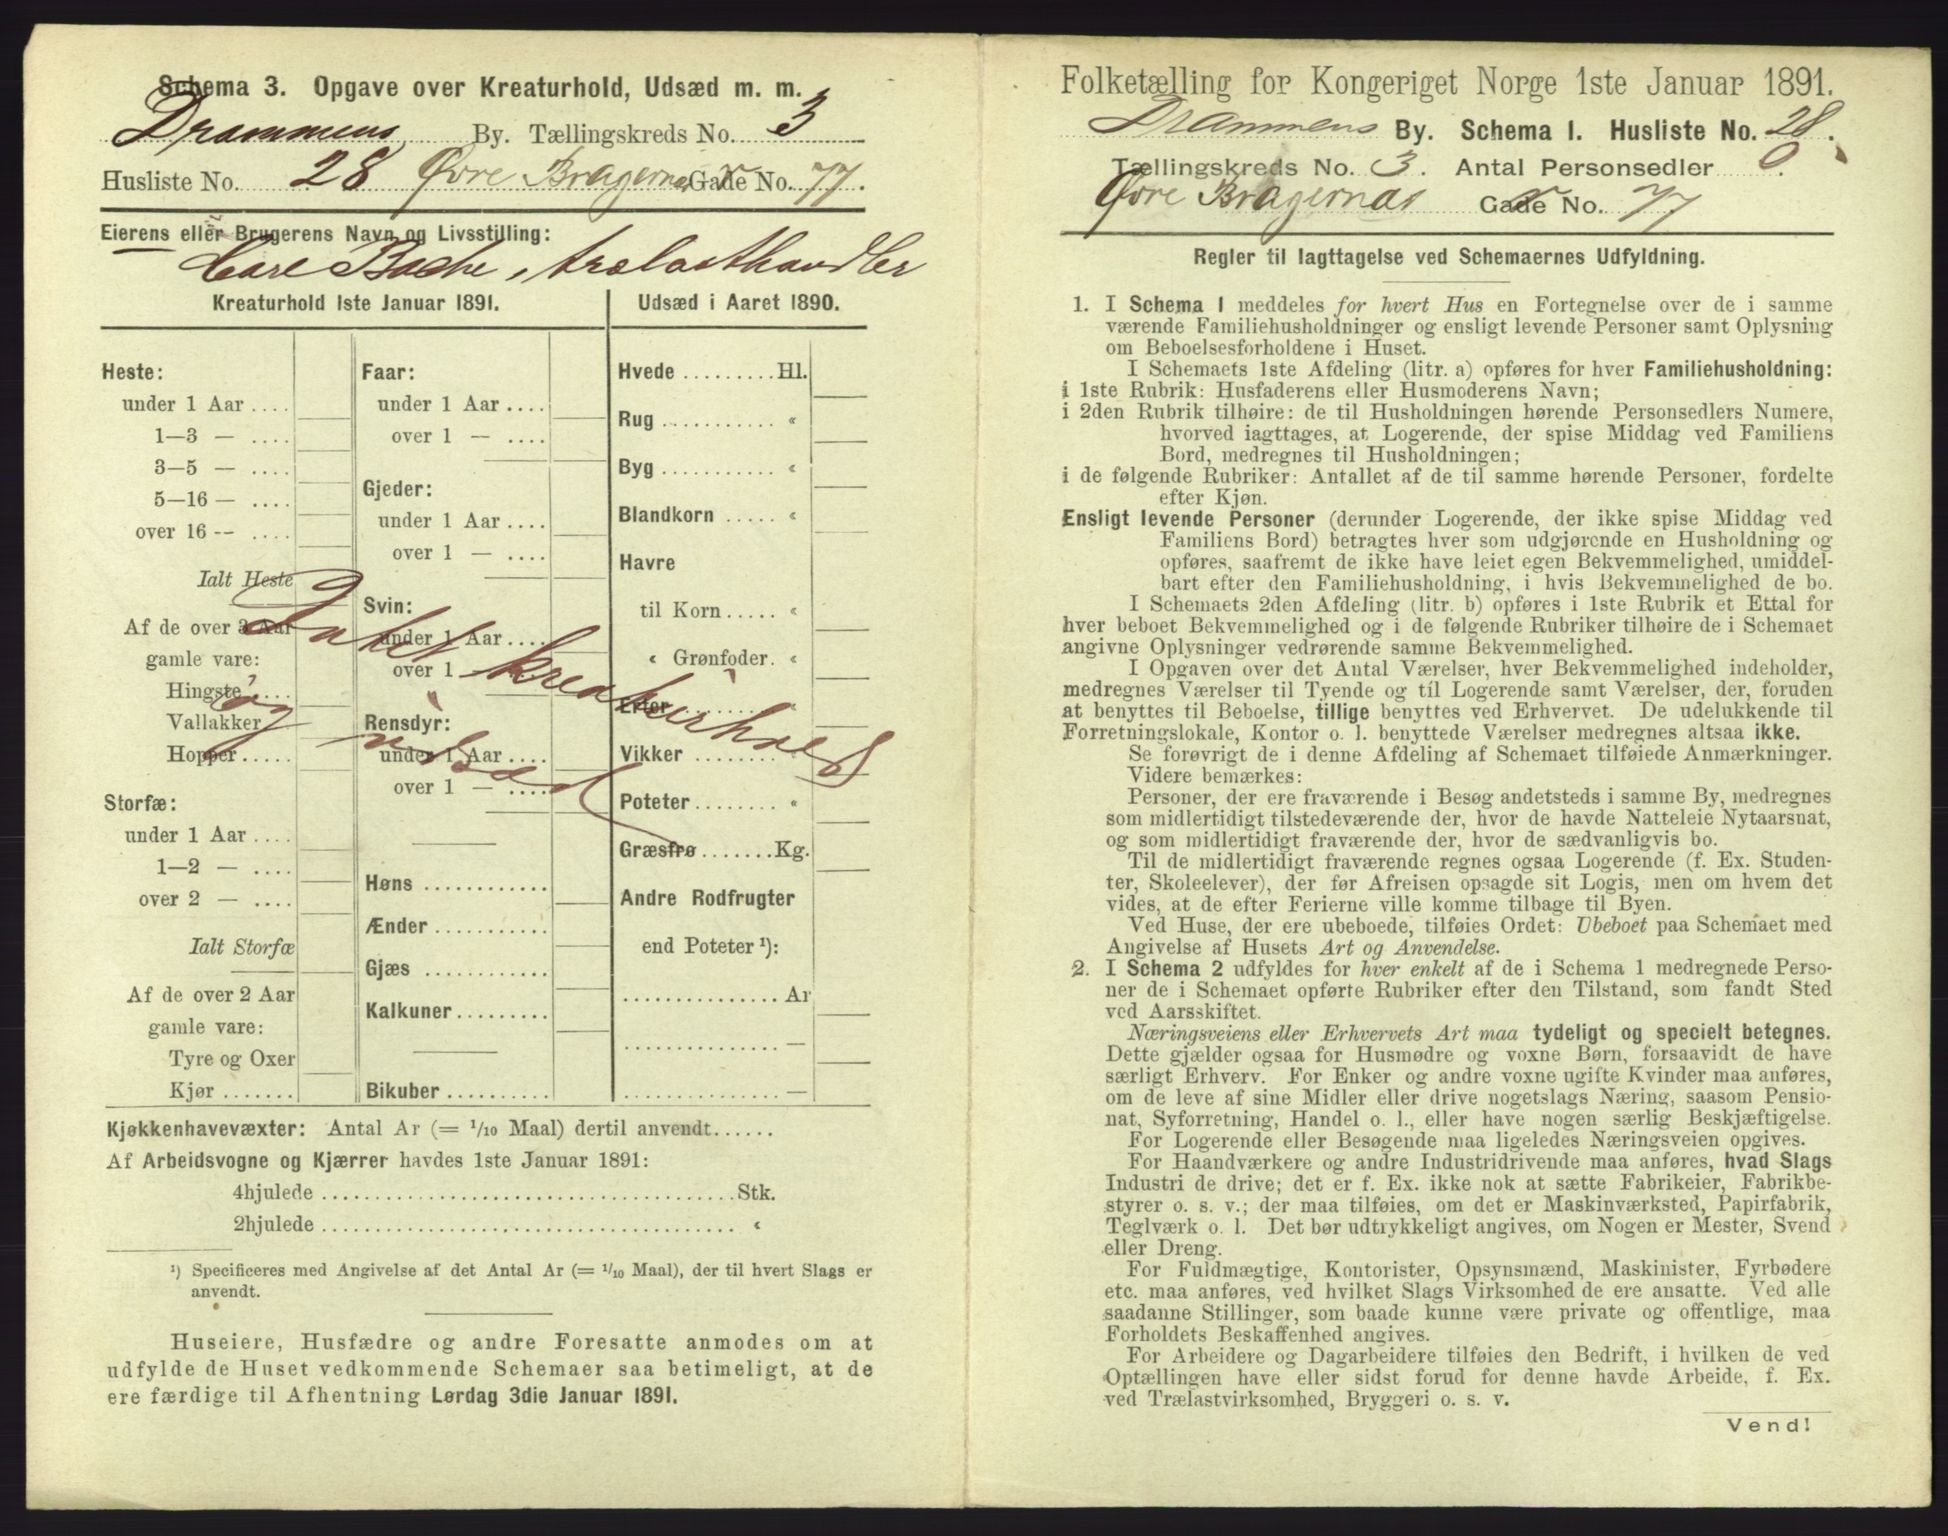 Schema 3. Opgave over Kreaturhold, Udsæd m. m.
Drammens By. Tællingskreds No. 3
Husliste No. 28 Øvre Bragernæs Gade No. 77.
Eierens eller Brugerens Navn og Livsstilling:
Carl Bache, trælasthandler
Kreaturhold 1ste Januar 1891.
Heste:
under 1 Aar ....
1—3 — ....
3—5 — ....
5—16 — ....
over 16 -- ....
Ialt Heste
Af de over 3 Aar
gamle vare:
Hingste ....
Vallakker
Hopper .....
Storfæ:
under 1 Aar ....
1—2 — ....
over 2 — ....
Ialt Storfæ
Af de over 2 Aar
gamle vare:
Tyre og Oxer
Kjør .......
Faar:
under 1 Aar ....
over 1 — ....
Gjeder:
under 1 Aar ....
over 1 — ....
Svin:
under 1 Aar ....
over 1 — ....
Rensdyr:
under 1 Aar ....
over 1 — ....
Høns ............
Ænder ...........
Gjæs ............
Kalkuner .........
Bikuber ..........
Udsæd i Aaret 1890.
Hvede .........Hl.
Rug ........... «
Byg ........... «
Blandkorn ..... «
Havre
til Korn ..... «
« Grønfoder. «
Erter ......... «
Vikker ........ «
Poteter ........ «
Græsfrø .......Kg.
Andre Rodfrugter
end Poteter ¹):
............... Ar
............... —
............... —
Intet kreaturhold
og udsæd
Kjøkkenhavevæxter: Antal Ar (= 1/10 Maal) dertil anvendt......
Af Arbeidsvogne og Kjærrer havdes 1ste Januar 1891:
4hjulede .......................................Stk.
2hjulede ....................................... «
¹) Specificeres med Angivelse af det Antal Ar (= 1/10 Maal), der til hvert Slags er
anvendt.
Huseiere, Husfædre og andre Foresatte anmodes om at
udfylde de Huset vedkommende Schemaer saa betimeligt, at de
ere færdige til Afhentning Lørdag 3die Januar 1891.
Folketælling for Kongeriget Norge 1ste Januar 1891.
Drammens By. Schema 1. Husliste No. 28.
Tællingskreds No. 3. Antal Personsedler 0.
Øvre Bragernæs Gade No. 77
Regler til Iagttagelse ved Schemaernes Udfyldning.
1. I Schema 1 meddeles for hvert Hus en Fortegnelse over de i samme
værende Familiehusholdninger og ensligt levende Personer samt Oplysning
om Beboelsesforholdene i Huset.
I Schemaets 1ste Afdeling (litr. a) opføres for hver Familiehusholdning:
i 1ste Rubrik: Husfaderens eller Husmoderens Navn;
i 2den Rubrik tilhøire: de til Husholdningen hørende Personsedlers Numere,
hvorved iagttages, at Logerende, der spise Middag ved Familiens
Bord, medregnes til Husholdningen;
i de følgende Rubriker: Antallet af de til samme hørende Personer, fordelte
efter Kjøn.
Ensligt levende Personer (derunder Logerende, der ikke spise Middag ved
Familiens Bord) betragtes hver som udgjørende en Husholdning og
opføres, saafremt de ikke have leiet egen Bekvemmelighed, umiddel-
bart efter den Familiehusholdning, i hvis Bekvemmelighed de bo.
I Schemaets 2den Afdeling (litr. b) opføres i 1ste Rubrik et Ettal for
hver beboet Bekvemmelighed og i de følgende Rubriker tilhøire de i Schemaet
angivne Oplysninger vedrørende samme Bekvemmelighed.
I Opgaven over det Antal Værelser, hver Bekvemmelighed indeholder,
medregnes Værelser til Tyende og til Logerende samt Værelser, der, foruden
at benyttes til Beboelse, tillige benyttes ved Erhvervet. De udelukkende til
Forretningslokale, Kontor o. l. benyttede Værelser medregnes altsaa ikke.
Se forøvrigt de i denne Afdeling af Schemaet tilføiede Anmærkninger.
Videre bemærkes:
Personer, der ere fraværende i Besøg andetsteds i samme By, medregnes
som midlertidigt tilstedeværende der, hvor de havde Natteleie Nytaarsnat,
og som midlertidigt fraværende der, hvor de sædvanligvis bo.
Til de midlertidigt fraværende regnes ogsaa Logerende (f. Ex. Studen-
ter, Skoleelever), der før Afreisen opsagde sit Logis, men om hvem det
vides, at de efter Ferierne ville komme tilbage til Byen.
Ved Huse, der ere ubeboede, tilføies Ordet: Ubeboet paa Schemaet med
Angivelse af Husets Art og Anvendelse.
2. I Schema 2 udfyldes for hver enkelt af de i Schema 1 medregnede Perso-
ner de i Schemaet opførte Rubriker efter den Tilstand, som fandt Sted
ved Aarsskiftet.
Næringsveiens eller Erhvervets Art maa tydeligt og specielt betegnes.
Dette gjælder ogsaa for Husmødre og voxne Børn, forsaavidt de have
særligt Erhverv. For Enker og andre voxne ugifte Kvinder maa anføres,
om de leve af sine Midler eller drive nogetslags Næring, saasom Pensio-
nat, Syforretning, Handel o. l., eller have nogen særlig Beskjæftigelse.
For Logerende eller Besøgende maa ligeledes Næringsveien opgives.
For Haandværkere og andre Industridrivende maa anføres, hvad Slags
Industri de drive; det er f. Ex. ikke nok at sætte Fabrikeier, Fabrikbe-
styrer o. s. v.; der maa tilføies, om det er Maskinværksted, Papirfabrik,
Teglværk o. l. Det bør udtrykkeligt angives, om Nogen er Mester, Svend
eller Dreng.
For Fuldmægtige, Kontorister, Opsynsmænd, Maskinister, Fyrbødere
etc. maa anføres, ved hvilket Slags Virksomhed de ere ansatte. Ved alle
saadanne Stillinger, som baade kunne være private og offentlige, maa
Forholdets Beskaffenhed angives.
For Arbeidere og Dagarbeidere tilføies den Bedrift, i hvilken de ved
Optællingen have eller sidst forud for denne havde Arbeide, f. Ex.
ved Trælastvirksomhed, Bryggeri o. s. v.
Vend!